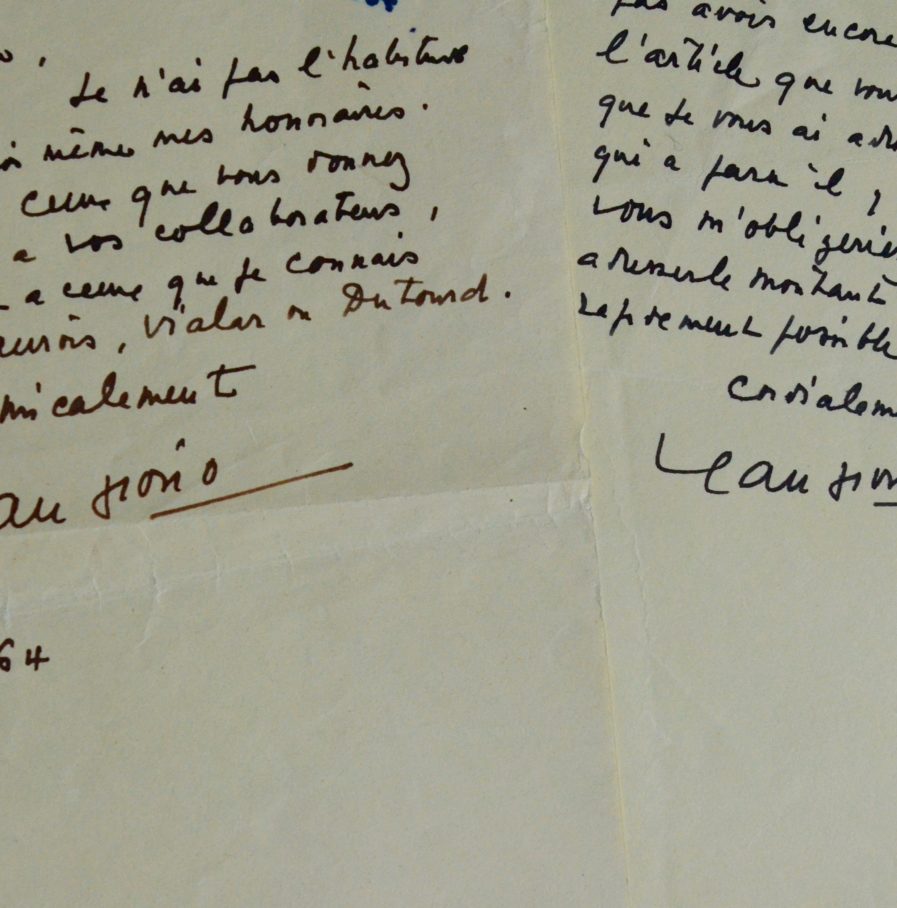 Je n'ai pas l'habitude
même mes honoraires.
ceux que vous donnez
a vos collaborateurs,
a ceux que je connais
, Vialar ou Dutourd.
micalement
an Giono
64
pas avoir encore
l'article que vou
que je vous ai adr
qui a paru il y
vous m'obligerie
adresser le montant
rapidement possible
Cordialem
Jean Gion